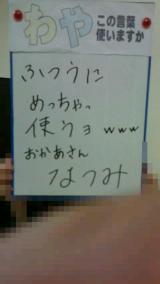 わや
この言葉
使いますか
ふつうに
めっちゃっ
使うョ www
おかあさん
なつみ